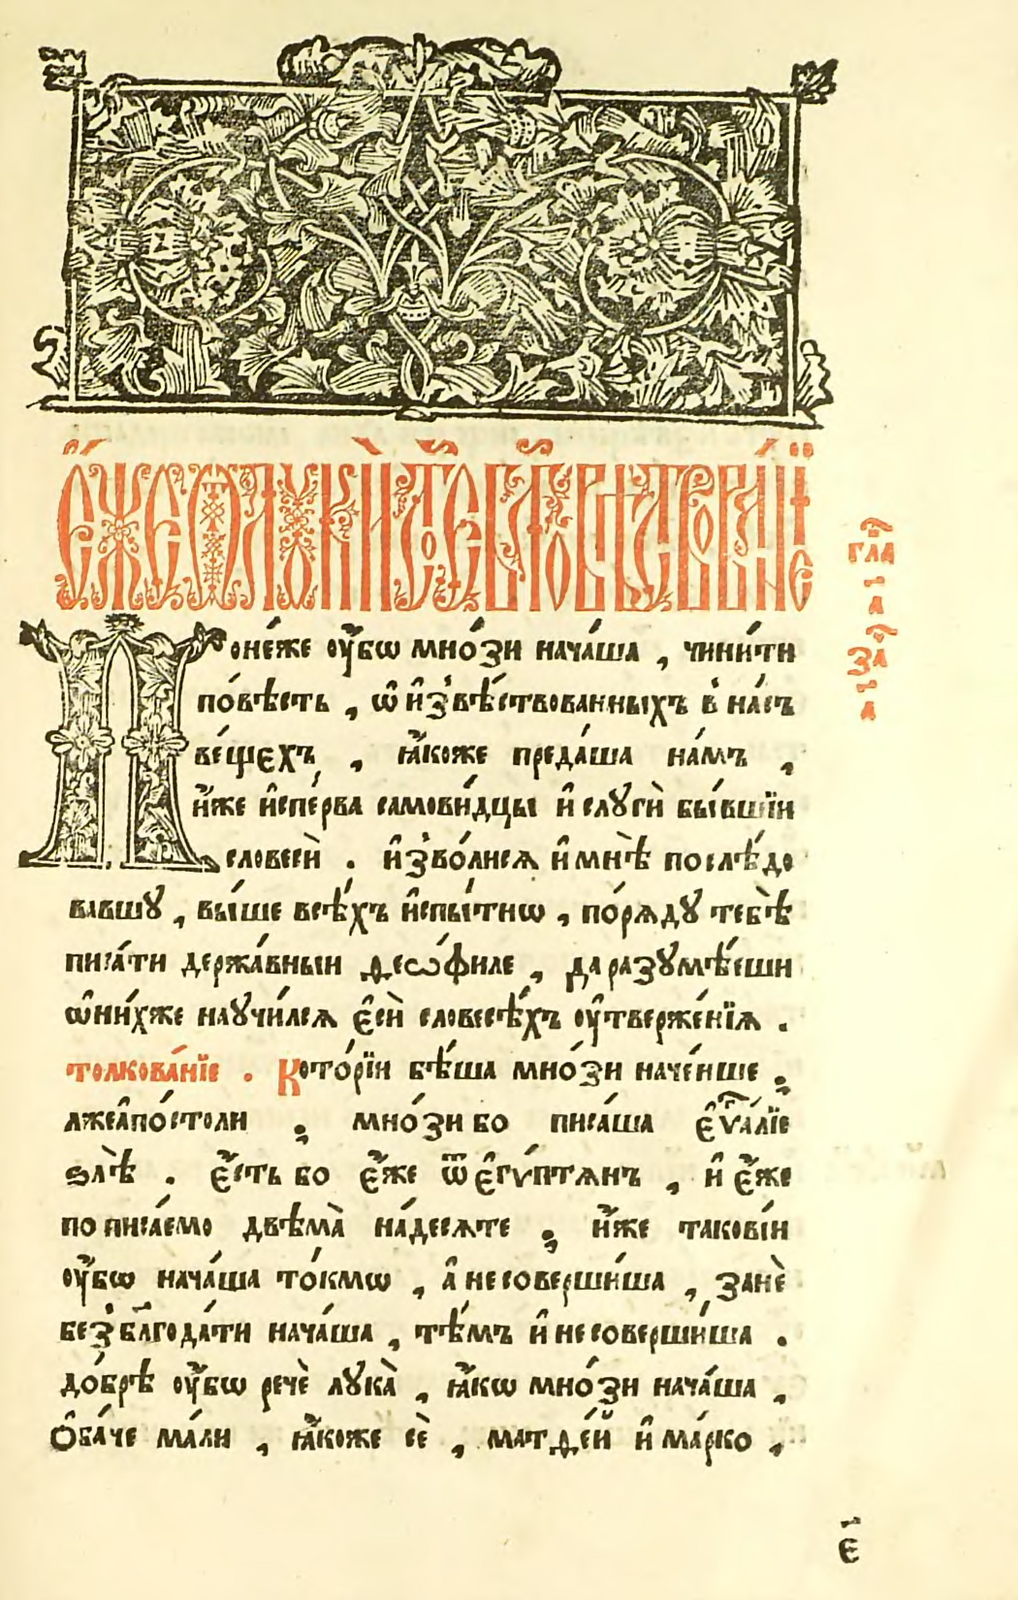 Е҆́же ѿ лꙋкѝ ст҃о́е бл҃говѣствова́нїе
гла̑ а҃
за̑ а҃
Поне́же ᲂу҆́бѡ мно́зи нача́ша , чини́ти
по́вѣсть , ѡ҆ и҆звѣ́ствованныхъ в̾ на́съ
ве́щехъ , ꙗ҆́коже преда́ша на́мъ ,
и҆̀же и҆спе́рва самови́дцы и҆ слꙋгѝ бы́вшїи
словесѝ . и҆зво́лисѧ и҆ мнѣ̀ послѣ́до
вавшꙋ , вы́ше всѣ́хъ и҆спы́тнѡ , по́рѧдꙋ тебѣ̀
писа́ти держа́вныи ѳео́филе , да разꙋмѣ́еши
ѡ҆ ни́хже наꙋчи́лсѧ є҆сѝ словесѣ́хъ ᲂу҆тверже́нїѧ .
толкова́нїе . Кото́рїи бѣ́ша мно́зи наче́нше ;
лжеапо́столи ; мно́зи бо писа́ша є҆ѵа҃лїе
ѕлѣ̀ . є҆́сть бо є҆́же ѿ є҆гѵ́птѧнъ , и҆ є҆́же
по писа́емо двѣма̀ на́десѧте ; и҆́же такові́и
ᲂу҆́бѡ нача́ша то́кмѡ , а҆ не соверши́ша , занѐ
без̾ бл҃года́ти нача́ша , тѣ́мъ и҆ не соверши́ша .
до́брѣ ᲂу҆́бѡ речѐ лꙋка̀ , ꙗ҆́кѡ мно́зи нача́ша ,
Ѻ҆ба́че ма́ли , ꙗ҆́коже сѐ , матѳе́й и҆ ма́рко ,
є҃